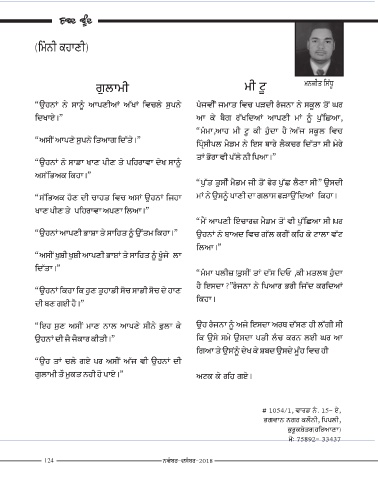 ਹਾਰਫ਼ ਚੁੰਦ
(ਮਿੰਨੀ ਕਹਾਣੀ)
ਗੁਲਾਮੀ
"ਉਹਨਾਂ ਨੇ ਸਾਨੂੰ ਆਪਣੀਆਂ ਅੱਖਾਂ ਵਿਚਲੇ ਸੁਪਨੇ
ਦਿਖਾਏ।"
"ਅਸੀਂ ਆਪਣੇ ਸੁਪਨੇ ਤਿਆਗ ਦਿੱਤੇ।"
"ਉਹਨਾਂ ਨੇ ਸਾਡਾ ਖਾਣ ਪੀਣ ਤੇ ਪਹਿਰਾਵਾ ਦੇਖ ਸਾਨੂੰ
ਅਸੱਭਿਅਕ ਕਿਹਾ।"
"ਸੱਭਿਅਕ ਹੋਣ ਦੀ ਚਾਹਤ ਵਿਚ ਅਸਾਂ ਉਹਨਾਂ ਜਿਹਾ
ਖਾਣ ਪੀਣ ਤੇ ਪਹਿਰਾਵਾ ਅਪਣਾ ਲਿਆ।"
"ਉਹਨਾਂ ਆਪਣੀ ਭਾਸ਼ਾ ਤੇ ਸਾਹਿਤ ਨੂੰ ਉੱਤਮ ਕਿਹਾ।"
"ਅਸੀਂ ਖੁਸ਼ੀ ਖੁਸ਼ੀ ਆਪਣੀ ਭਾਸ਼ਾ ਤੇ ਸਾਹਿਤ ਨੂੰ ਖੂੰਜੇ ਲਾ
ਦਿੱਤਾ।"
"ਉਹਨਾਂ ਕਿਹਾ ਕਿ ਹੁਣ ਤੁਹਾਡੀ ਸੋਚ ਸਾਡੀ ਸੋਚ ਦੇ ਹਾਣ
ਦੀ ਬਣ ਗਈ ਹੈ।"
"ਇਹ ਸੁਣ ਅਸੀਂ ਮਾਣ ਨਾਲ ਆਪਣੇ ਸੀਨੇ ਫੁਲਾ ਕੇ
ਉਹਨਾਂ ਦੀ ਜੈ ਜੈਕਾਰ ਕੀਤੀ।"
"ਉਹ ਤਾਂ ਚਲੇ ਗਏ ਪਰ ਅਸੀਂ ਅੱਜ ਵੀ ਉਹਨਾਂ ਦੀ
ਗੁਲਾਮੀ ਤੋਂ ਮੁਕਤ ਨਹੀਂ ਹੋ ਪਾਏ।"
ਮੀ ਟੂ
ਮਨਜੀਤ ਸਿੱਧੂ
ਪੰਜਵੀਂ ਜਮਾਤ ਵਿਚ ਪੜਦੀ ਰੰਜਨਾ ਨੇ ਸਕੂਲ ਤੋਂ ਘਰ
ਆ ਕੇ ਬੈਗ ਰੱਖਦਿਆਂ ਆਪਣੀ ਮਾਂ ਨੂੰ ਪੁੱਛਿਆ,
"ਮੰਮਾ,ਆਹ ਮੀ ਟੂ ਕੀ ਹੁੰਦਾ ਹੈ ?ਅੱਜ ਸਕੂਲ ਵਿਚ
ਪ੍ਰਿੰਸੀਪਲ ਮੈਡਮ ਨੇ ਇਸ ਬਾਰੇ ਲੈਕਚਰ ਦਿੱਤਾ ਸੀ ਮੇਰੇ
ਤਾਂ ਭੋਰਾ ਵੀ ਪੱਲੇ ਨੀ ਪਿਆ।"
"ਪੁੱਤ ਤੁਸੀਂ ਮੈਡਮ ਜੀ ਤੋਂ ਫੇਰ ਪੁੱਛ ਲੈਣਾ ਸੀ" ਉਸਦੀ
ਮਾਂ ਨੇ ਉਸਨੂੰ ਪਾਣੀ ਦਾ ਗਲਾਸ ਫੜਾਉਂਦਿਆਂ ਕਿਹਾ।
"ਮੈਂ ਆਪਣੀ ਇੰਚਾਰਜ਼ ਮੈਡਮ ਤੋਂ ਵੀ ਪੁੱਛਿਆ ਸੀ ਪਰ
ਉਹਨਾਂ ਨੇ ਬਾਅਦ ਵਿਚ ਗੱਲ ਕਰੀਂ ਕਹਿ ਕੇ ਟਾਲਾ ਵੱਟ
ਲਿਆ।"
"ਮੰਮਾ ਪਲੀਜ਼ ਤੁਸੀਂ ਤਾਂ ਦੱਸ ਦਿਓ ,ਕੀ ਮਤਲਬ ਹੁੰਦਾ
ਹੈ ਇਸਦਾ ?"ਰੰਜਨਾ ਨੇ ਪਿਆਰ ਭਰੀ ਜਿੱਦ ਕਰਦਿਆਂ
ਕਿਹਾ।
ਉਹ ਰੰਜਨਾ ਨੂੰ ਅਜੇ ਇਸਦਾ ਅਰਥ ਦੱਸਣ ਹੀ ਲੱਗੀ ਸੀ
ਕਿ ਉਸੇ ਸਮੇਂ ਉਸਦਾ ਪਤੀ ਲੰਚ ਕਰਨ ਲਈ ਘਰ ਆ
ਗਿਆ ਤੇ ਉਸਨੂੰ ਦੇਖ ਕੇ ਸ਼ਬਦ ਉਸਦੇ ਮੂੰਹ ਵਿਚ ਹੀ
ਅਟਕ ਕੇ ਰਹਿ ਗਏ।
# 1054/1, ਵਾਰਡ ਨੰ. 15- ਏ,
ਭਗਵਾਨ ਨਗਰ ਕਲੋਨੀ, ਪਿਪਲੀ,
ਕੁਰੂਕਸ਼ੇਤਰ(ਹਰਿਆਣਾ)
ਮੋ: 75892- 33437
124
ਨਵੰਬਰ-ਦਸੰਬਰ-2018